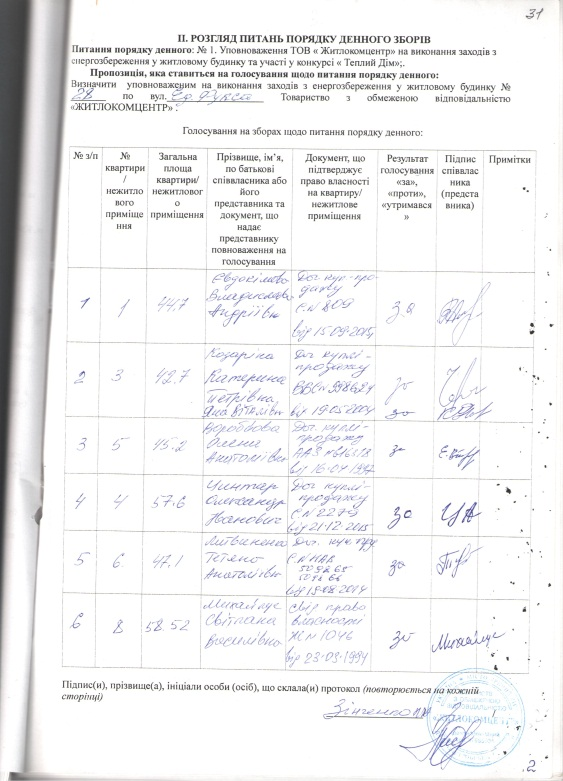 31
II. РОЗГЛЯД ПИТАНЬ ПОРЯДКУ ДЕННОГО ЗБОРІВ
Питання порядку денного: № 1. Уповноваження ТОВ « Житлокомцентр» на виконання заходів з
енергозбереження у житловому будинку та участі у конкурсі « Теплий Дім»;.
Пропозиція, яка ставиться на голосування щодо питання порядку денного:
Визначити уповноваженим на виконання заходів з енергозбереження у житловому будинку №
28 по вул. Товариство з обмеженою відповідальністю
«ЖИТЛОКОМЦЕНТР» .
Голосування на зборах щодо питання порядку денного:
№ з/п
№ квартири / нежитло вого приміще ння
Загальна площа квартири/ нежитловог о приміщення
Прізвище, ім'я, по батькові співвласника або його представника та документ, що надає представнику повноваження на голосування
Документ, що підтверджує право власності на квартиру/ нежитлове приміщення
Результат голосування «за», «проти», «утримався »
Підпис співвлас ника (предста вника)
Примітки
1 1 44,7 Андріївна від 15.09.2015 за
2 3 42.7 Козаріна Катерина Петрівна, Яна Віталіївн від 19.05.2004 за за
3 5 45.2 Олена Анатоліївн за
4 4 57.6 Олександр Іванович CN 2279 від 21.12.2015 за
5 6 47,1 Тетяна Анатоліївн за
6 8 58.52 Світлана Василівна свід. право власності Ж N 1046 від 23.09.1994 за
Підпис(и), прізвище(а), ініціали особи (осіб), що склала(и) протокол (повторюється на кожній
сторінці)
Зінченко
2